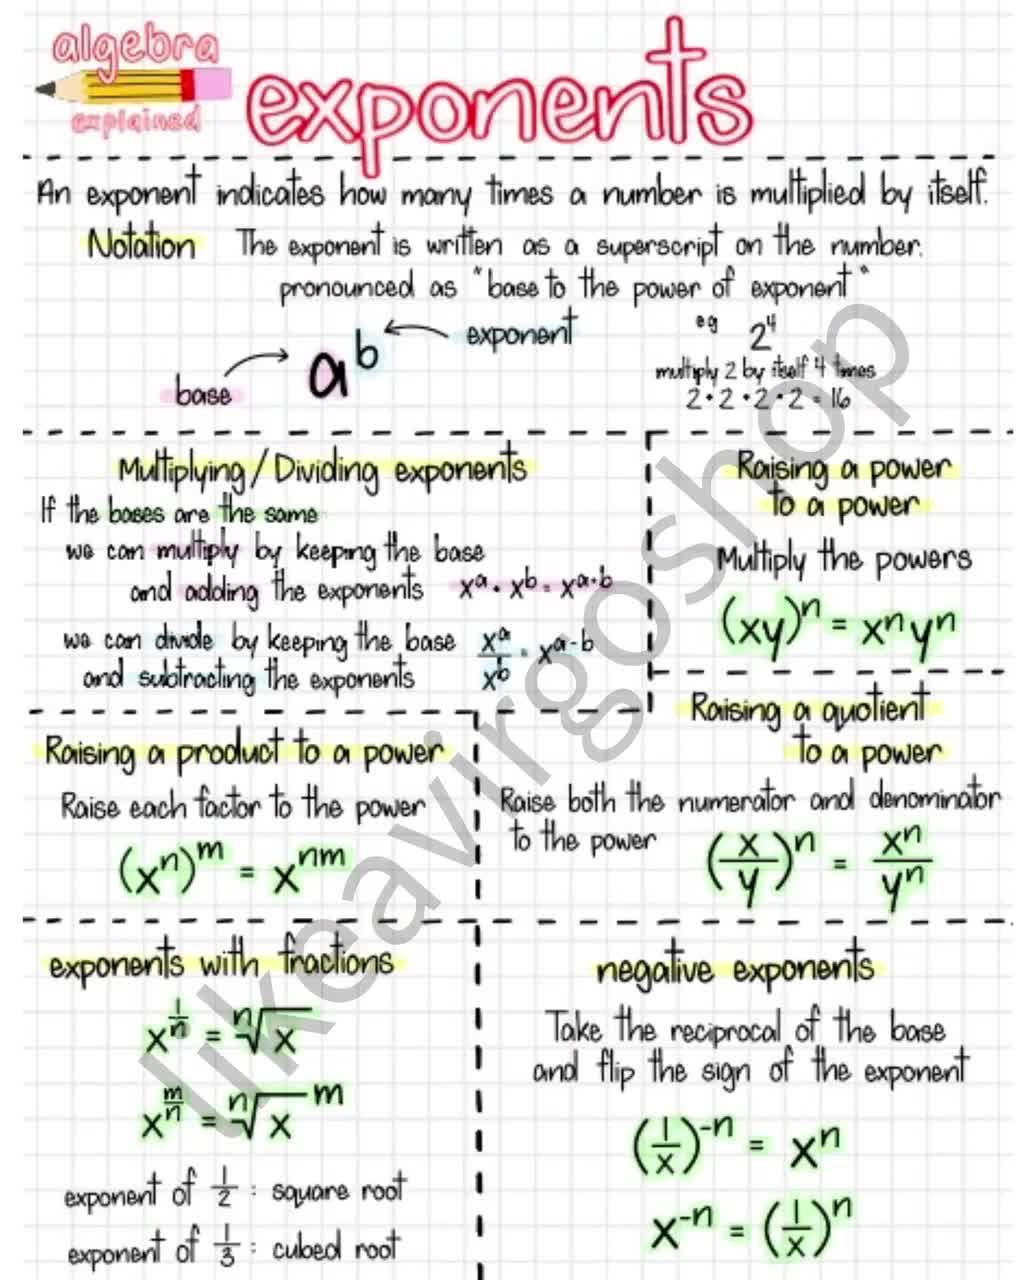 algebra
explained
exponents
An exponent indicates how many times a number is multiplied by itself.
Notation The exponent is written as a superscript on the number.
pronounced as "base to the power of exponent"
base
aᵇ
exponent
eg 2⁴
multiply 2 by itself 4 times
2 · 2 · 2 · 2 = 16
Multiplying/Dividing exponents
If the bases are the same
we can multiply by keeping the base
and adding the exponents xᵃ · xᵇ = xᵃ⁺ᵇ
we can divide by keeping the base
and subtracting the exponents
xᵃ/xᵇ = xᵃ⁻ᵇ
Raising a power
to a power
Multiply the powers
(xy)ⁿ = xⁿyⁿ
Raising a product to a power
Raise each factor to the power
(xⁿ)ᵐ = xⁿᵐ
Raising a quotient
to a power
Raise both the numerator and denominator
to the power
(x/y)ⁿ = xⁿ/yⁿ
exponents with fractions
x^(1/n) = ⁿ√x
x^(m/n) = ⁿ√x ᵐ
exponent of 1/2 : square root
exponent of 1/3 : cubed root
negative exponents
Take the reciprocal of the base
and flip the sign of the exponent
(1/x)⁻ⁿ = xⁿ
x⁻ⁿ = (1/x)ⁿ
likeavirgoshop